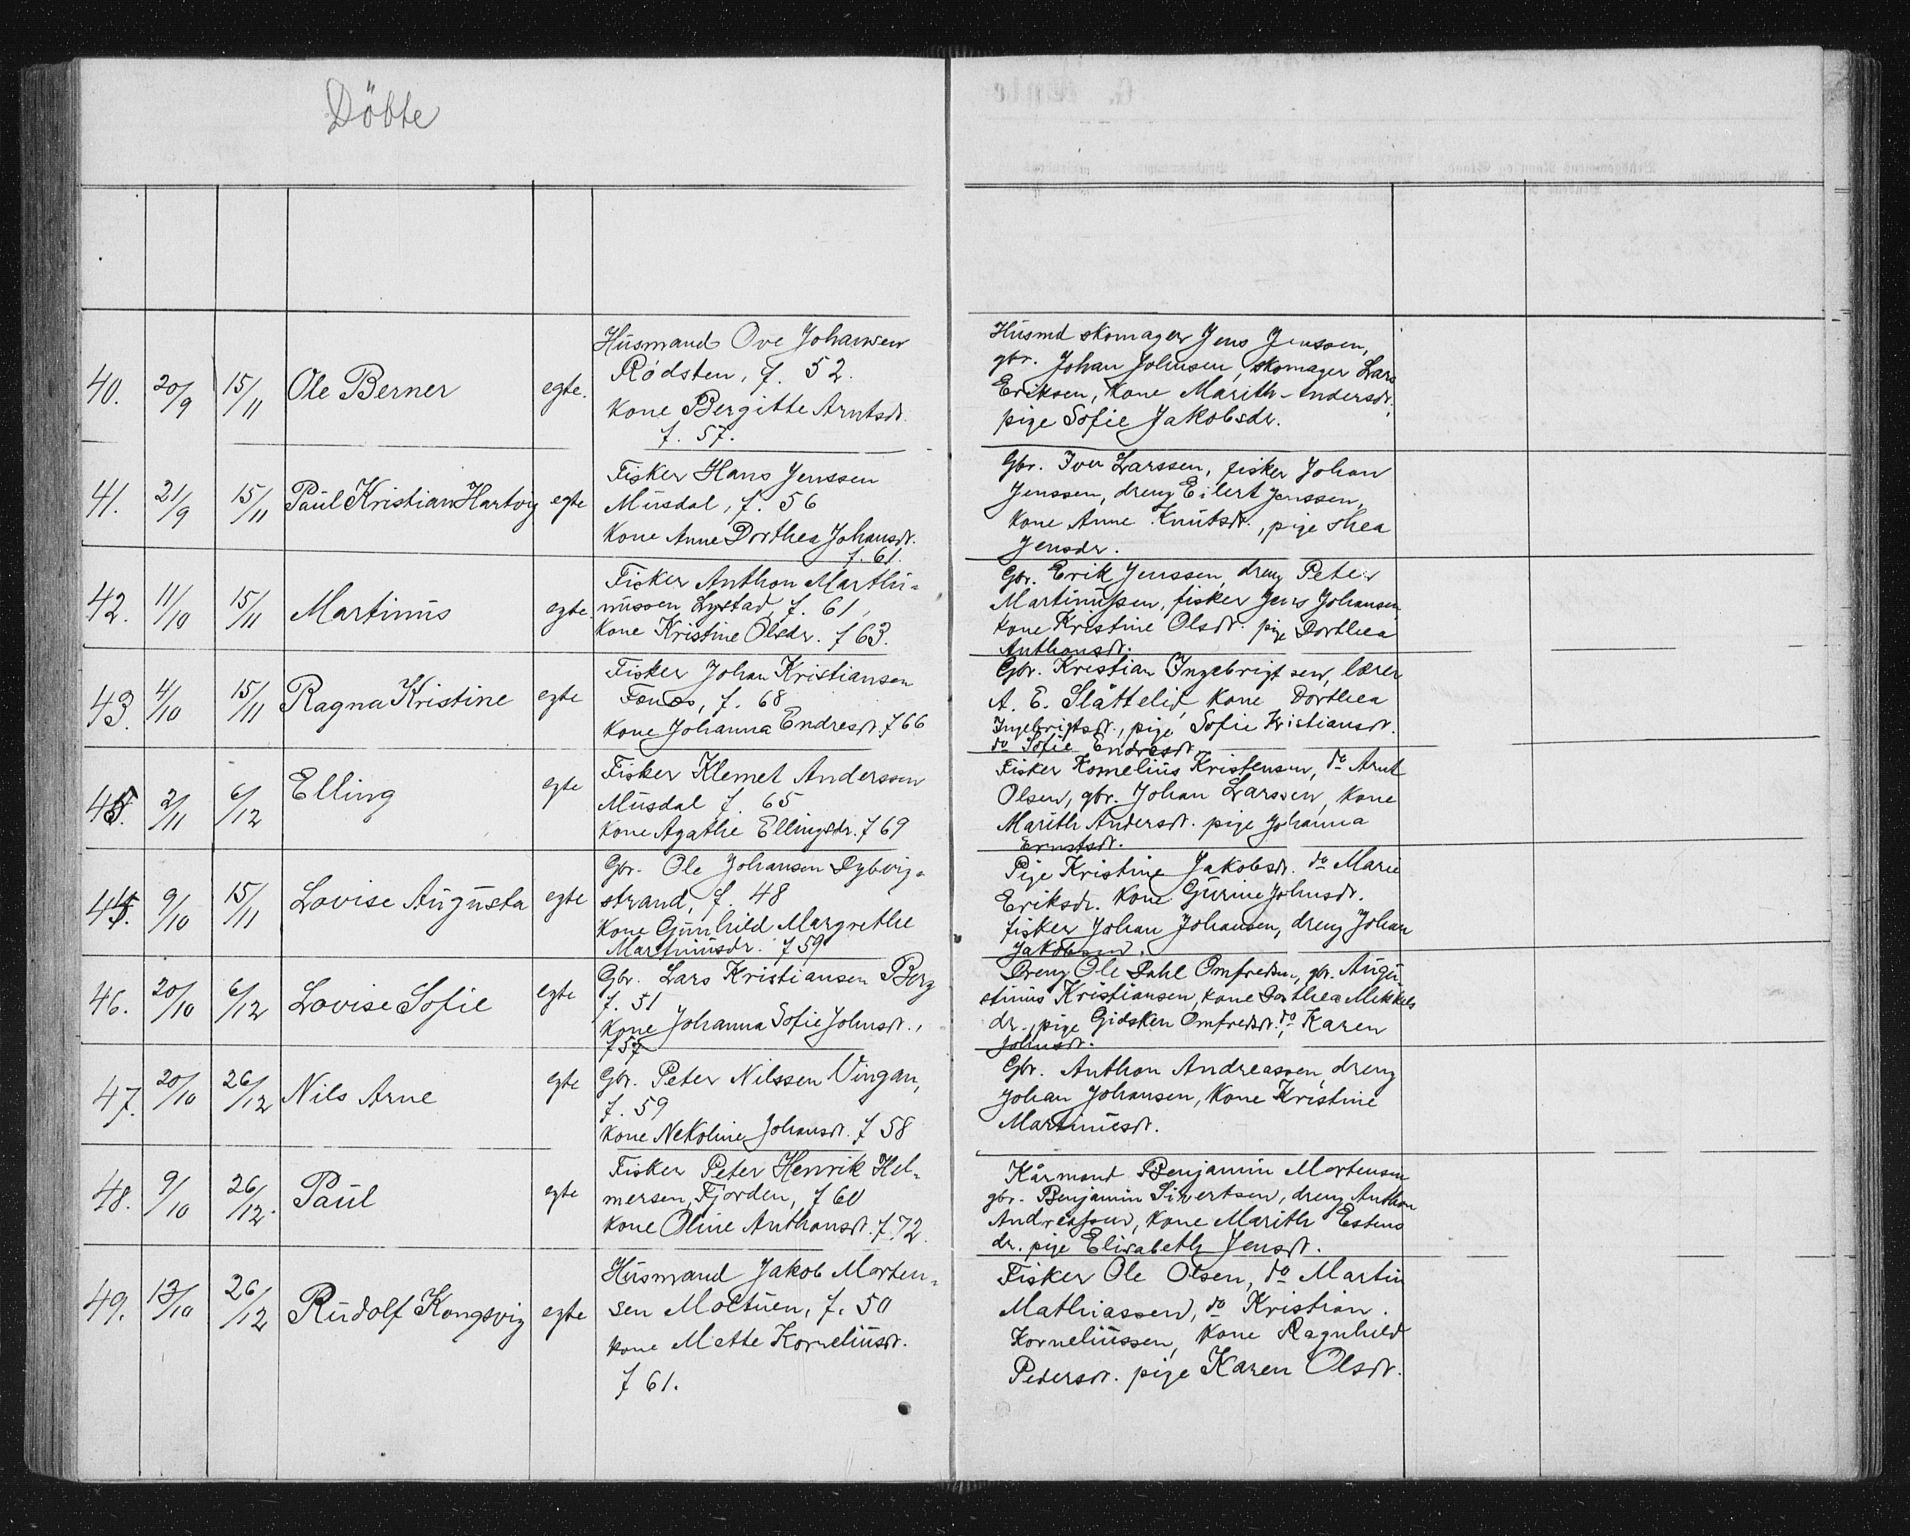 Döbte
40. 20/9 15/11 Ole Berner egte.
Husmand Ove Johansen
Rødsten, f. 52.
Kone Bergitte Arntsdt.
f. 57.
Husmd skomager Jens Jenssen,
gbr. Johan Johnsen, skomager Lars
Eriksen, Kone Marith Andersdt,
pige Sofie Jakobsdr.
41. 21/9 15/11 Paul Kristian Hartvig egte
Fisker Hans Jenssen
Musdal, f. 56
Kone Anne Dorthea Johansdt.
f. 61.
Gbr. Iver Larssen, fisker Johan
Jenssen, dreng Eilert Jenssen,
Kone Anne Knutsdt., pige Thea
Jensdr.
42. 11/10 15/11 Martinus egte.
Fisker Anthon Marthi-
nussen Lystad, f. 61,
Kone Kristine Olsdr. f 63.
Gbr. Erik Jenssen, dreng Peter
Martinussen, fisker Jens Johansen
Kone Kristine Olsdt. pige Dorthea
Anthonsdt.
43. 4/10 15/11 Ragna Kristine egte
Fisker Johan Kristiansen
f. 68
Kone Johanna Endresdt. f 66
Gbr. Kristian Ingebrigtsen, lærer
A. E. Slåttelid, Kone Dorthea
Ingebrigtsdt., pige Sofie Kristiansdt.
do Sofie Endresdt.
45. 2/11 6/12 Elling egte
Fisker Klemet Anderssen
Musdal f. 65
Kone Agathe Ellingsdr. f 69
Fisker Kornelius Kristensen, do Arnt
Olsen, gbr. Johan Larssen, Kone
Marith Andersdt. pige Johanna
Ernstsdt.
44. 9/10 15/11 Lovise Augusta egte
Gbr. Ole Johansen Dybvig-
strand, f. 48
Kone Gunhild Margrethe
Martinusdr. f 59
Pige Kristine Jakobsdt. do Marie
Eriksdr. Kone Gurine Johnsdt.
fisker Johan Johansen, dreng Johan
Jakobsen.
46. 20/10 6/12 Lovise Sofie egte
Gbr. Lars Kristiansen Berg
f. 51
Kone Johanna Sofie Johnsdt.,
f 57
Dreng Ole Dahl Omfredsen, gbr. Augu
stinus Kristiansen, Kone Dorthea Mikkels
dr., pige Gidsken Omfredsdt., do Karen
Johnsdt.
47. 20/10 26/12 Nils Arne egte
Gbr. Peter Nilssen Vingan,
f. 59
Kone Nekoline Johansdt. f 58
Gbr. Anthon Andreassen, dreng
Johan Johansen, Kone Kristine
Martinusdt.
48. 9/10 26/12. Paul egte
Fisker Peter Henrik Hel-
mersen, Fjorden, f 60
Kone Oline Anthonsdt. f. 72.
Kårmand Benjamin Mortensen
gbr. Benjamin Sivertsen, dreng Anthon
Andreassen, Kone Marith Estens
dr. pige Elisabeth Jensdt.
49. 13/10 26/12 Rudolf Kongsvig egte
Husmand Jakob Morten-
sen Moltuen, f. 50
Kone Mette Korneliusdt.
f 61.
Fisker Ole Olsen, do Martin
Mathiassen, do Kristian
Korneliussen, Kone Ragnhild
Pedersdt. pige Karen Olsdt.